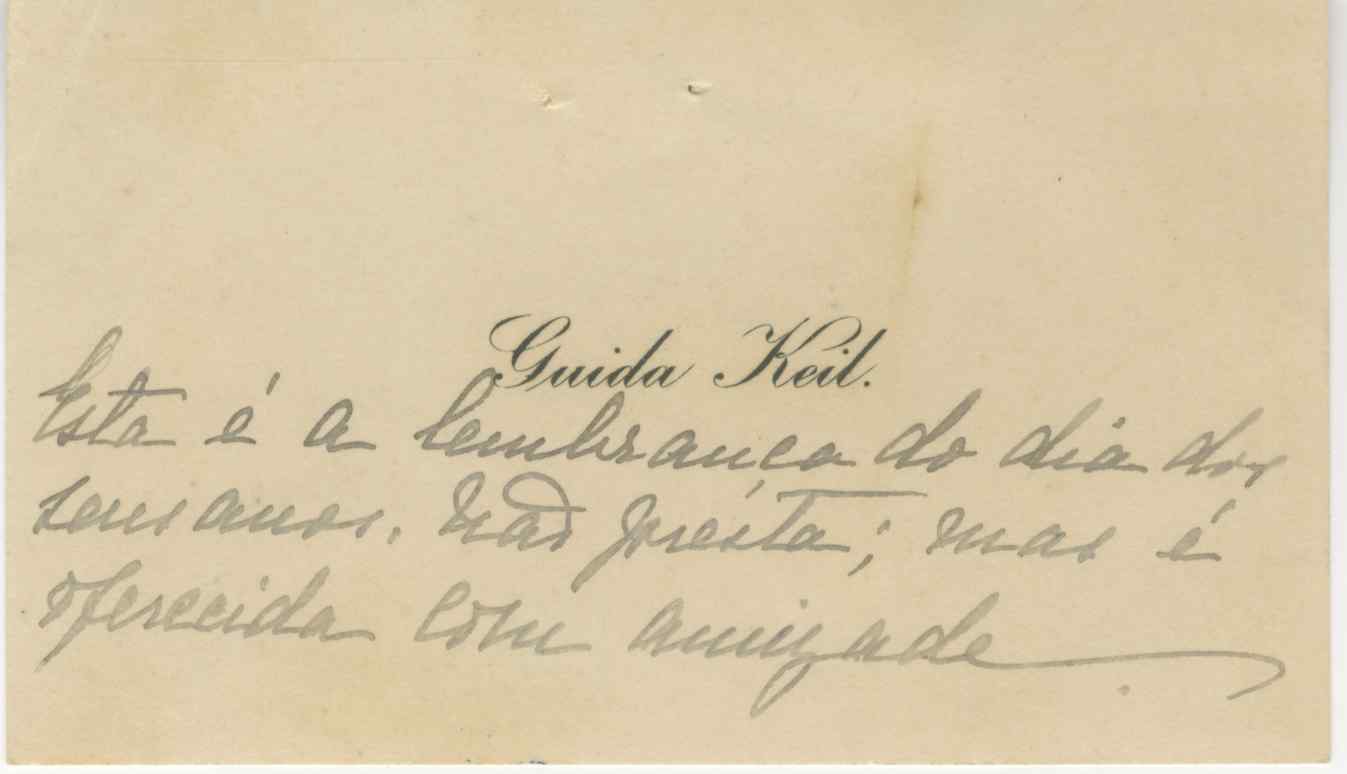 Guida Keil.
Esta é a lembrança do dia dos
seus anos. Não presta; mas é
oferecida com amizade